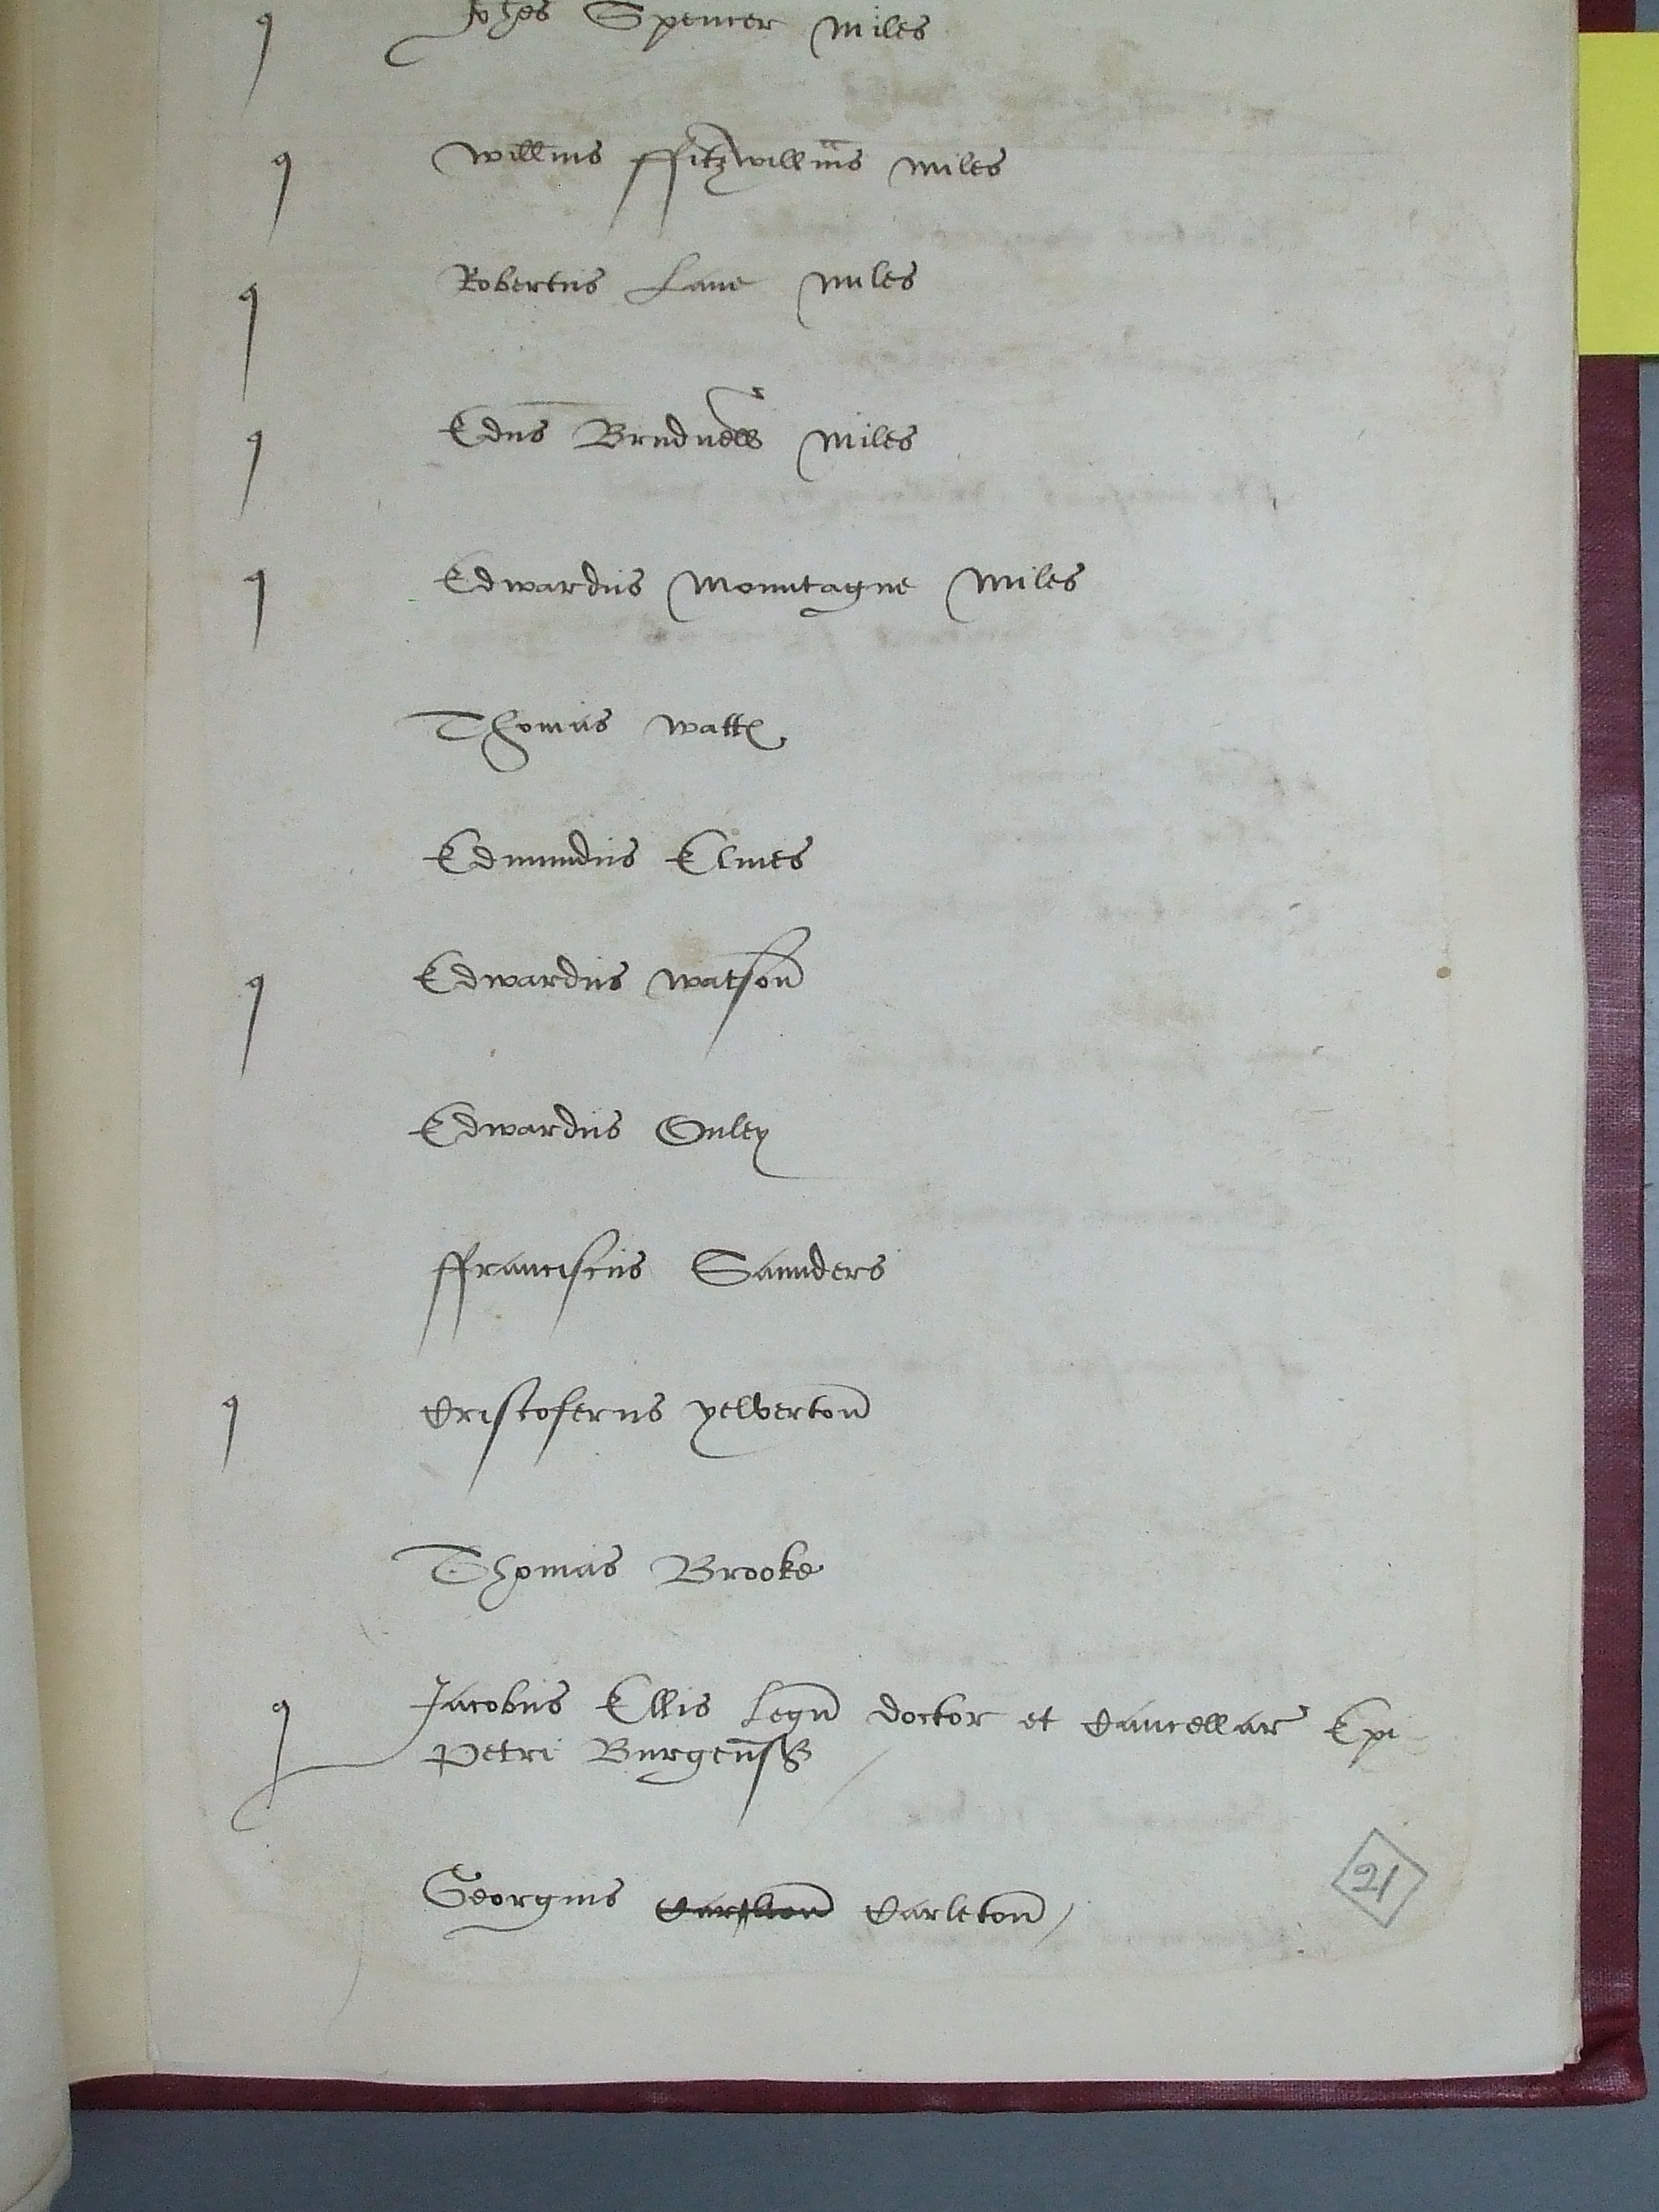 q Johes Spencer miles
q Willms ffitzwillms miles
q Robertus Lane miles
q Edus Brudnell miles
q Edwardus Mountagne miles
Thomas Watts
Edmundus Elmes
q Edwardus Watson
Edwardus Onley
ffranciscus Saunders
q Cristoferus Yelverton
Thomas Brooke
q Jacobus Ellis Legu doctor et Cancellar Epi
Petri Burgens
Georgius Carleton
21